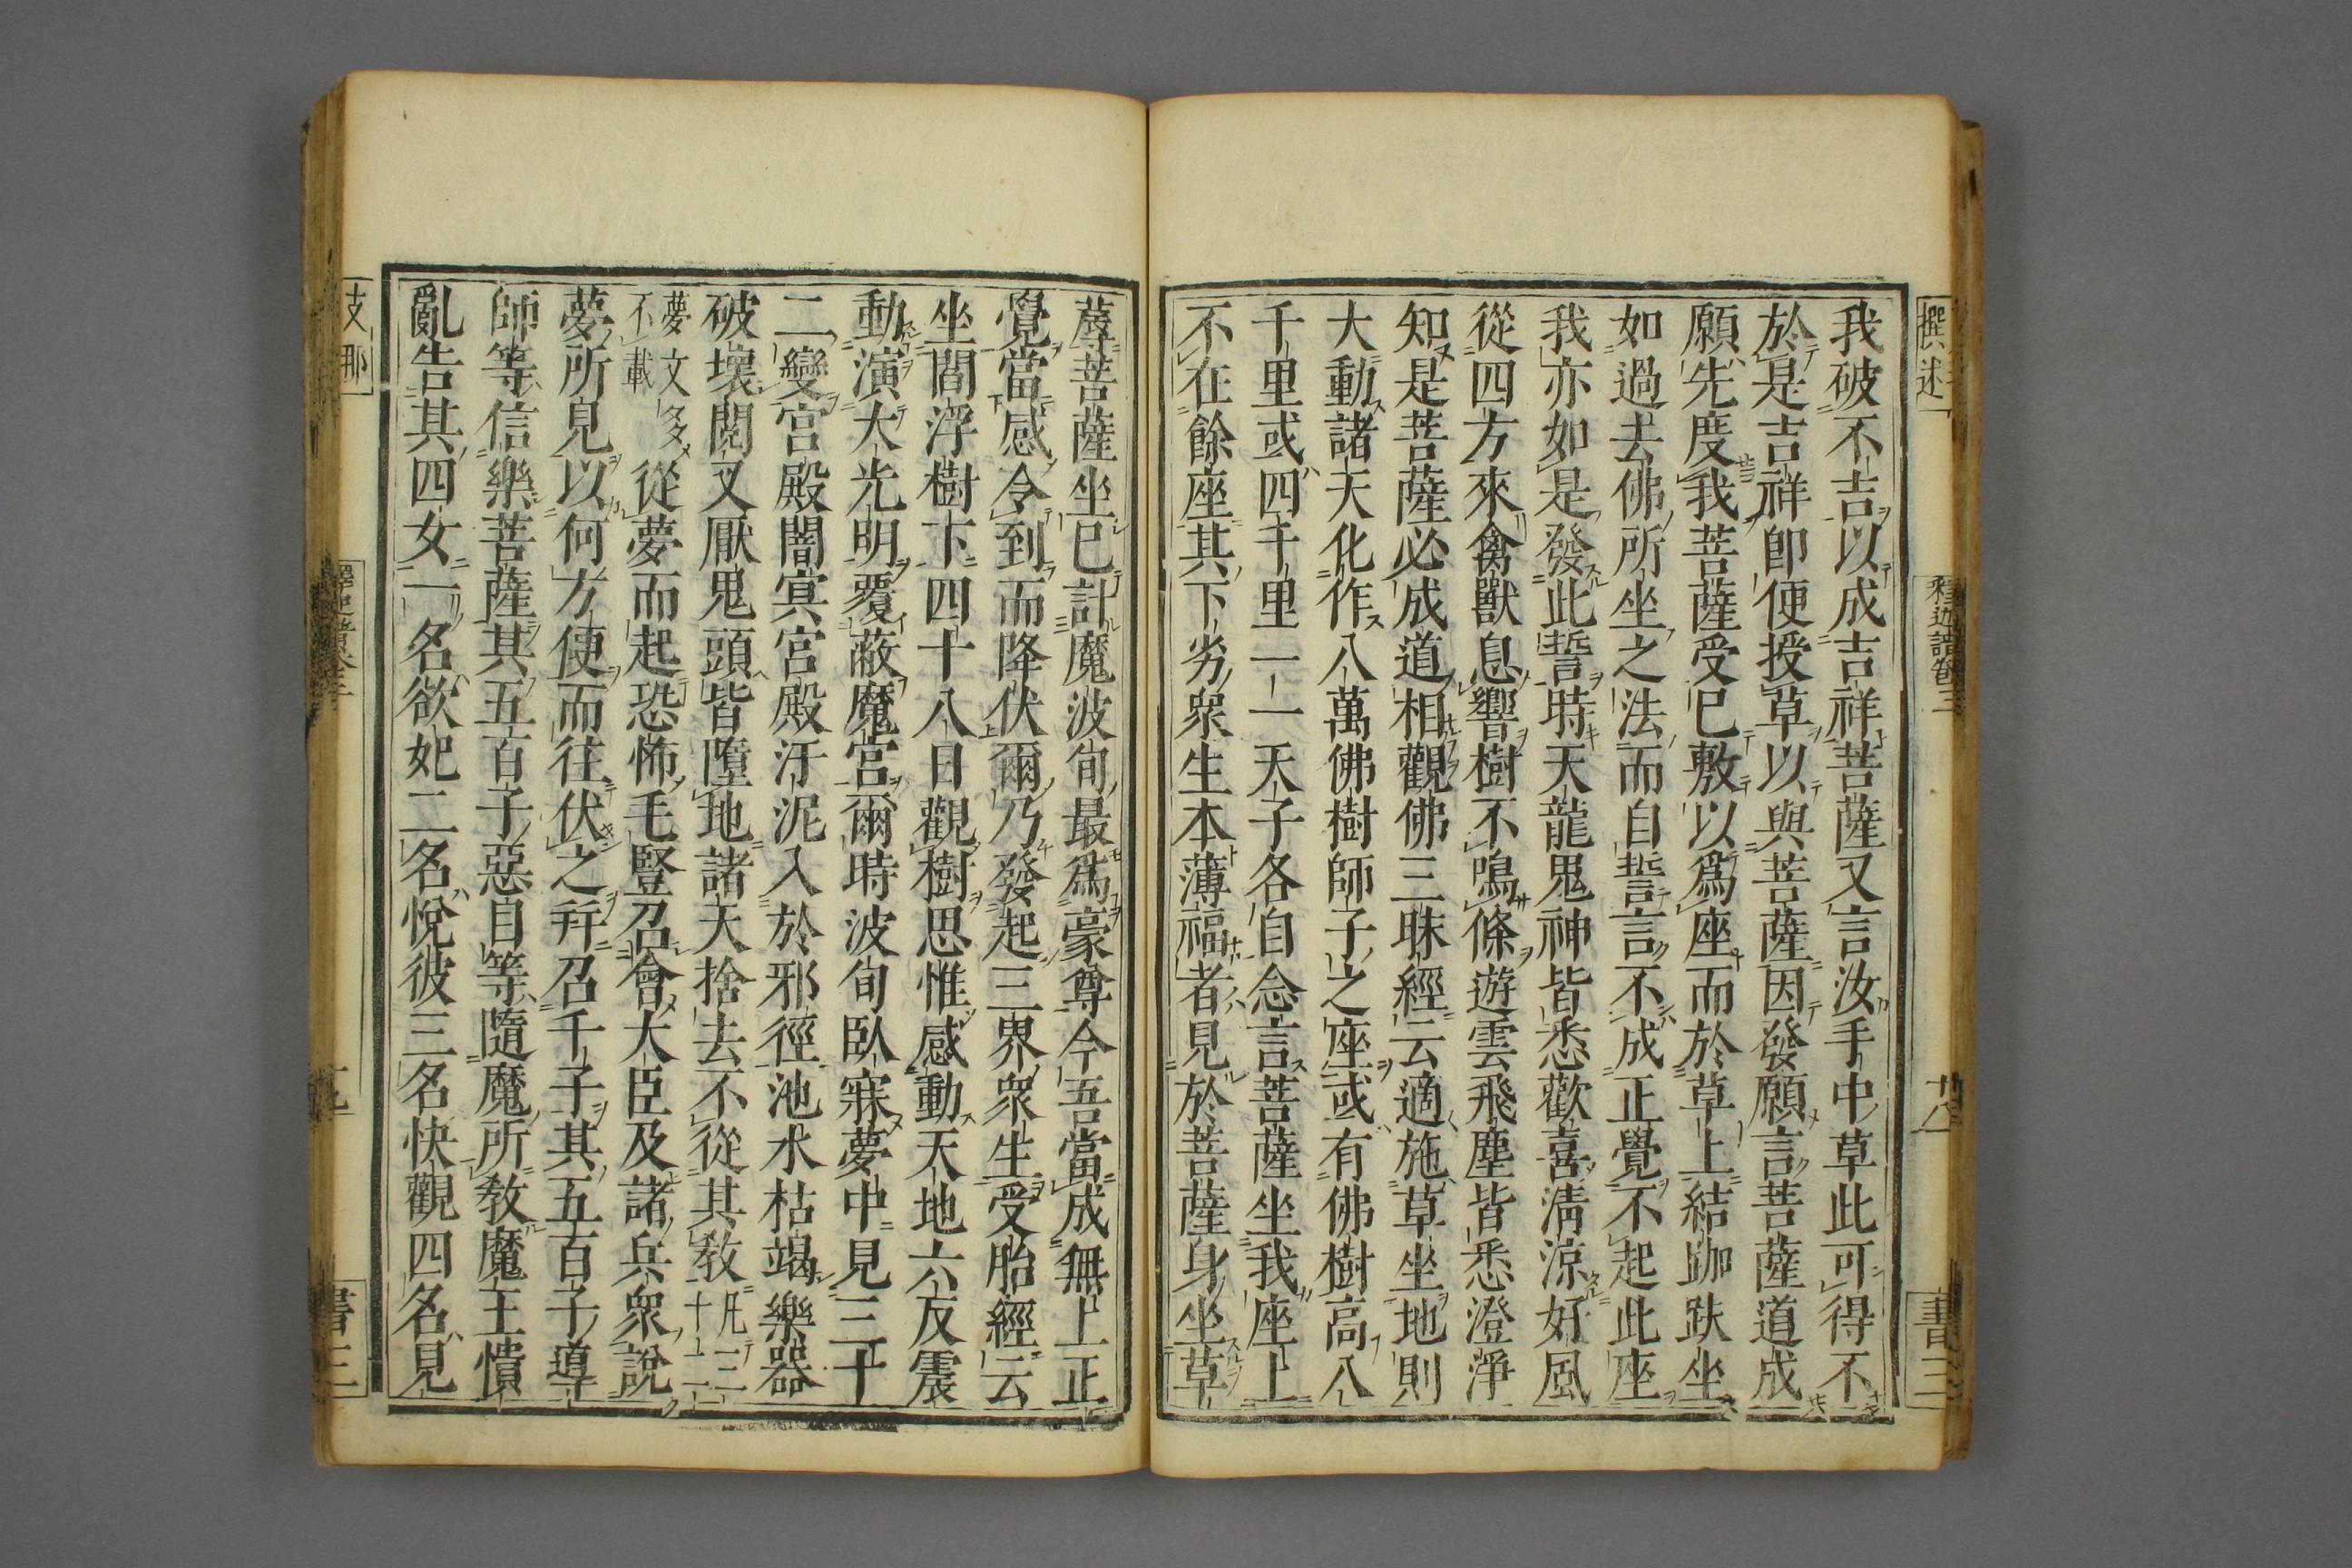 撰述
釋迦譜卷三
廿八
書三
我破不吉以成吉祥菩薩又言汝手中草此可得不
於是吉祥卽便授草以與菩薩因發願言菩薩道成
願先度我菩薩受已敷以爲座而於草上結跏趺坐
如過去佛所坐之法而自誓言不成正覺不起此座
我亦如是發此誓時天龍鬼神皆悉歡喜淸涼好風
從四方來禽獸息響樹不鳴條遊雲飛塵皆悉澄淨
知是菩薩必成道相觀佛三昧經云適施草坐地則
大動諸天化作八萬佛樹師子之座或有佛樹高八
千里或四千里一一天子各自念言菩薩坐我座上
不在餘座其下劣衆生本薄福者見於菩薩身坐草
蓐菩薩坐已計魔波旬最爲豪尊今吾當成無上正
覺當感令到而降伏爾乃發起三界衆生受胎經云
坐閻浮樹下四十八日觀樹思惟感動天地六反震
動演大光明覆蔽魔宮爾時波旬臥寐夢中見三十
二變宮殿闇冥宮殿汙泥入於邪徑池水枯竭樂器
破壞閱叉厭鬼頭皆墮地諸天捨去不從其敎凡三十二
夢文多不載從夢而起恐怖毛豎召會大臣及諸兵衆說
夢所見以何方便而往伏之幷召千子其五百子導
師等信樂菩薩其五百子惡自等隨魔所敎魔王憒
亂告其四女一名欲妃二名悅彼三名快觀四名見
支那
書三